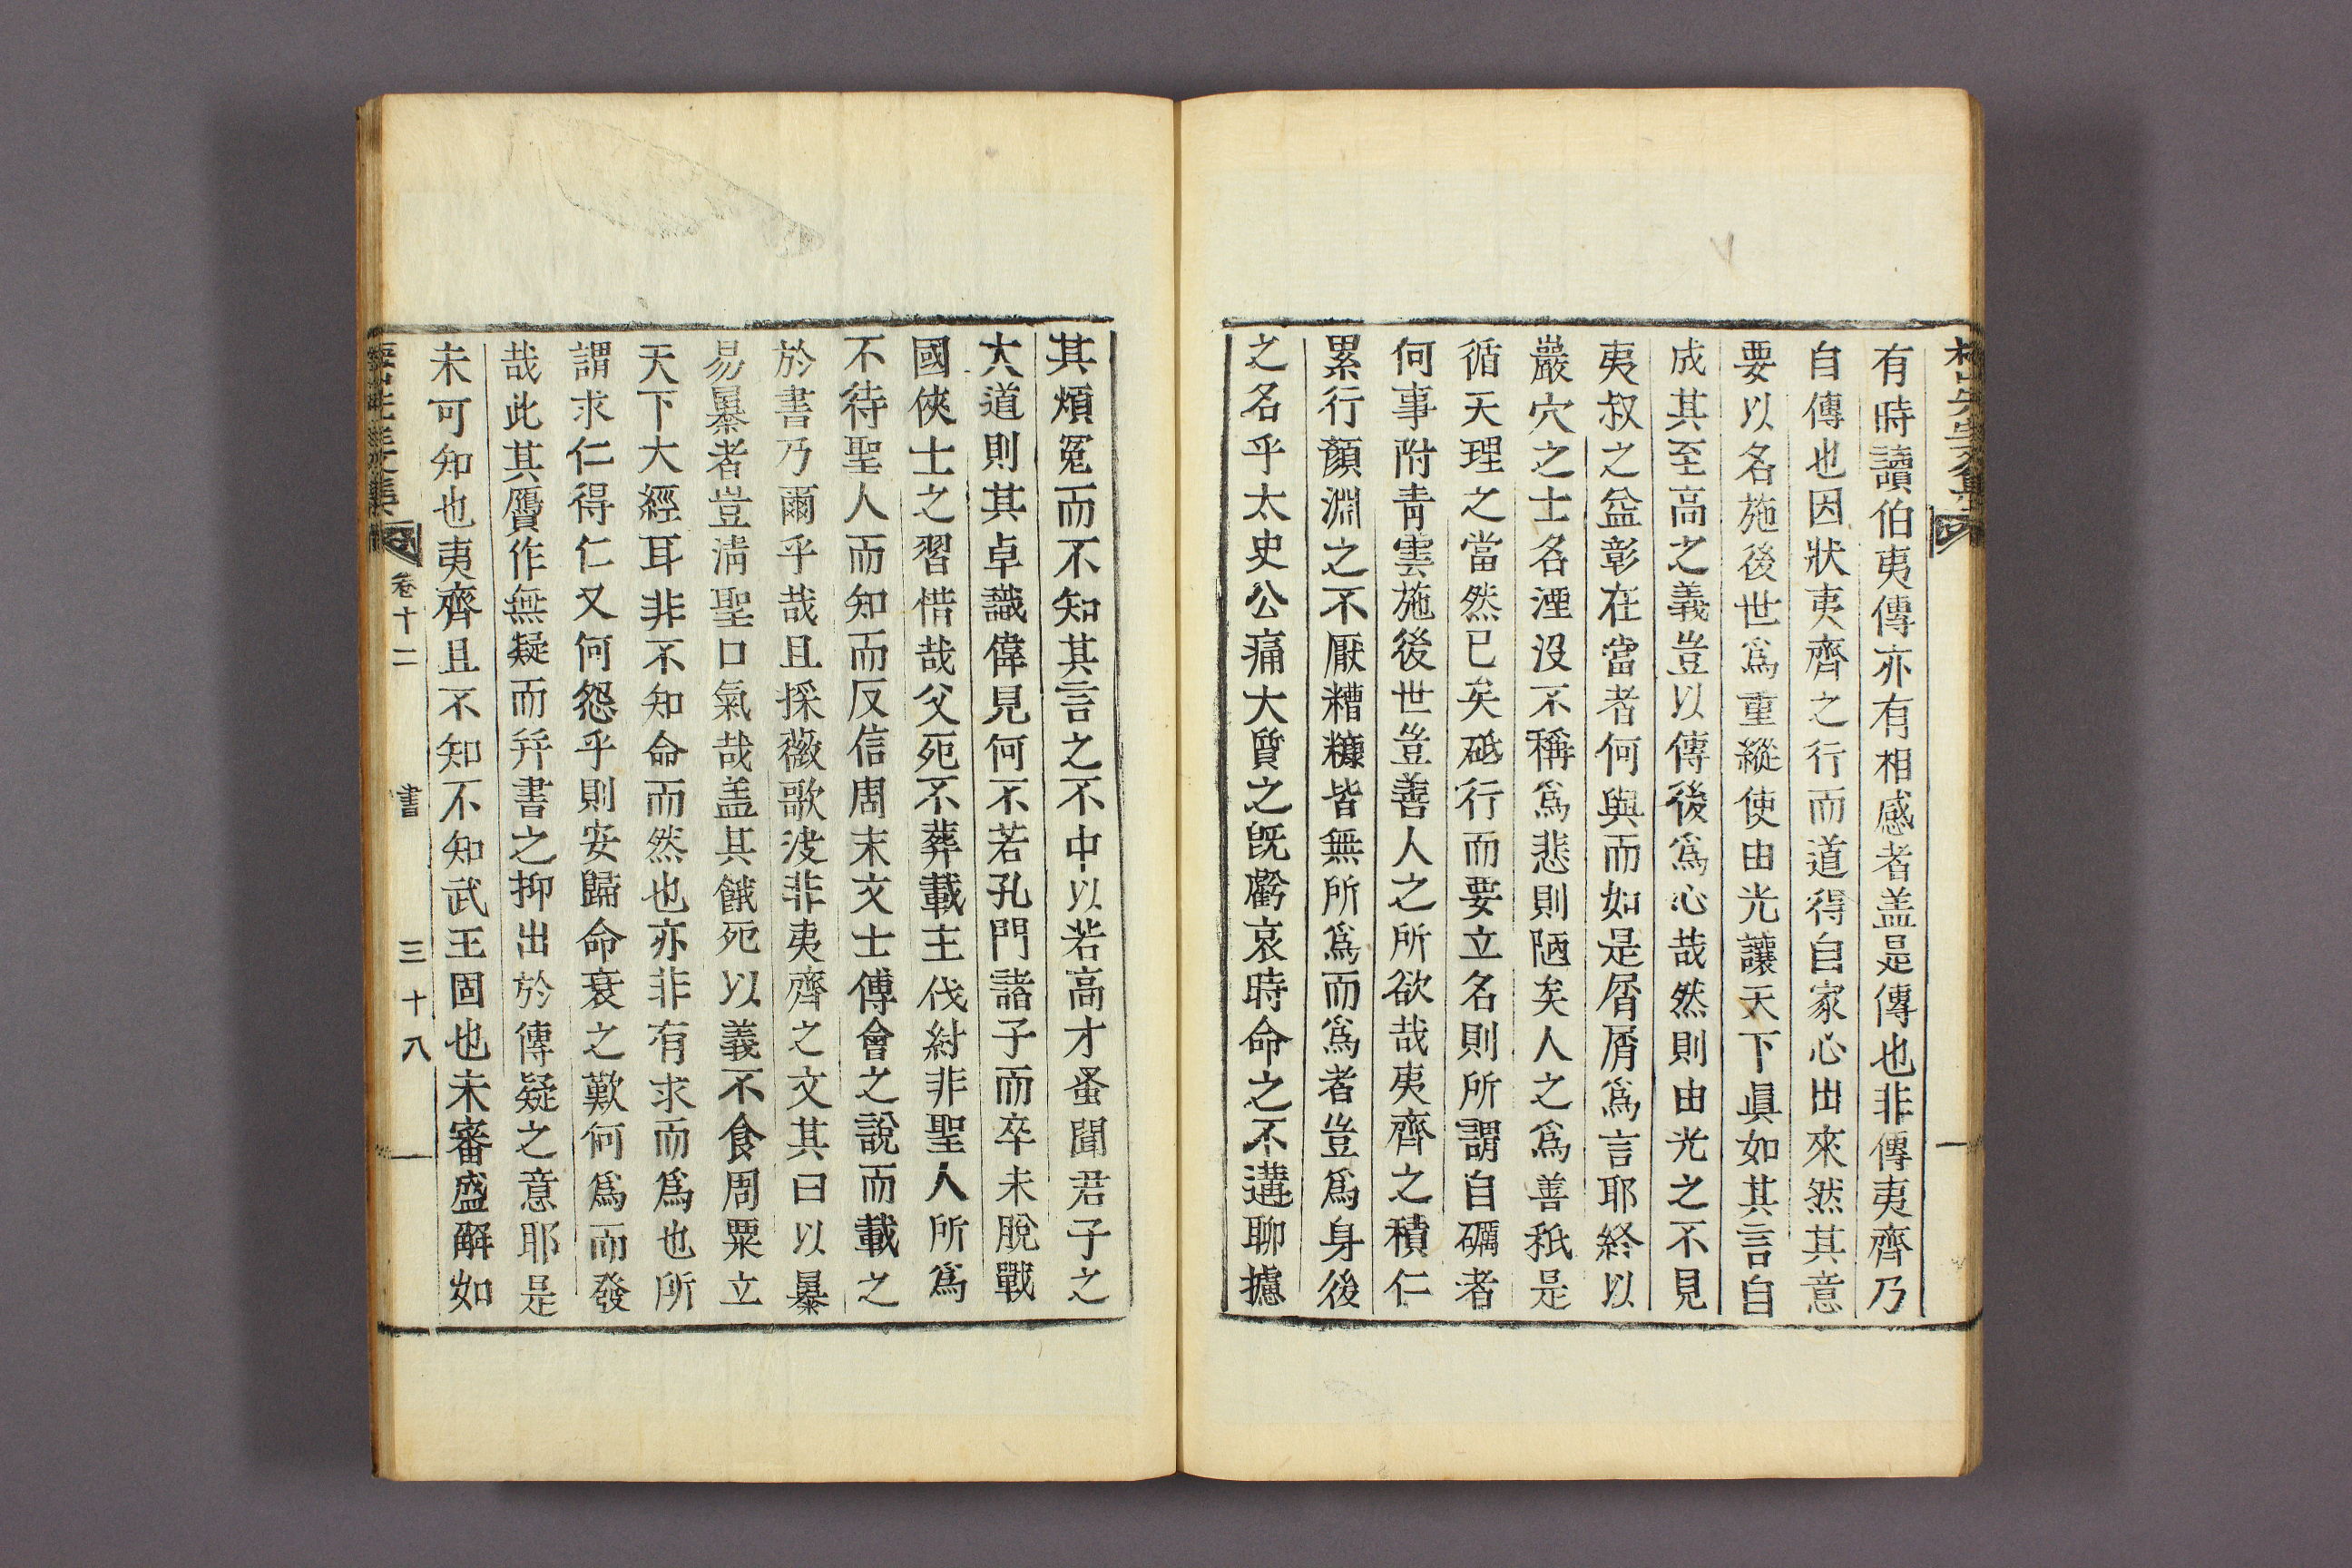 有時讀伯夷傳亦有相感者盖是傳也非傳夷齊乃
自傳也因狀夷齊之行而道得自家心出來然其意
要以名施後世爲重縱使由光讓天下眞如其言自
成其至高之義豈以傳後爲心哉然則由光之不見
夷叔之益彰在當者何與而如是屑屑爲言耶終以
巖穴之士名湮沒不稱爲悲則陋矣人之爲善秖是
循天理之當然已矣砥行而要立名則所謂自礪者
何事附靑雲施後世豈善人之所欲哉夷齊之積仁
累行顔淵之不厭糟糠皆無所爲而爲者豈爲身後
之名乎太史公痛大質之旣虧哀時命之不遘聊攄
其煩寃而不知其言之不中以若高才蚤聞君子之
大道則其卓識偉見何不若孔門諸子而卒未脫戰
國俠士之習惜哉父死不葬載主伐紂非聖人所爲
不待聖人而知而反信周末文士傅會之說而載之
於書乃爾乎哉且採薇歌决非夷齊之文其曰以暴
易暴者豈淸聖口氣哉盖其餓死以義不食周粟立
天下大經耳非不知命而然也亦非有求而爲也所
謂求仁得仁又何怨乎則安歸命衰之歎何爲而發
哉此其贋作無疑而幷書之抑出於傳疑之意耶是
未可知也夷齊且不知不知武王固也未審盛解如
卷十二 書 三十八